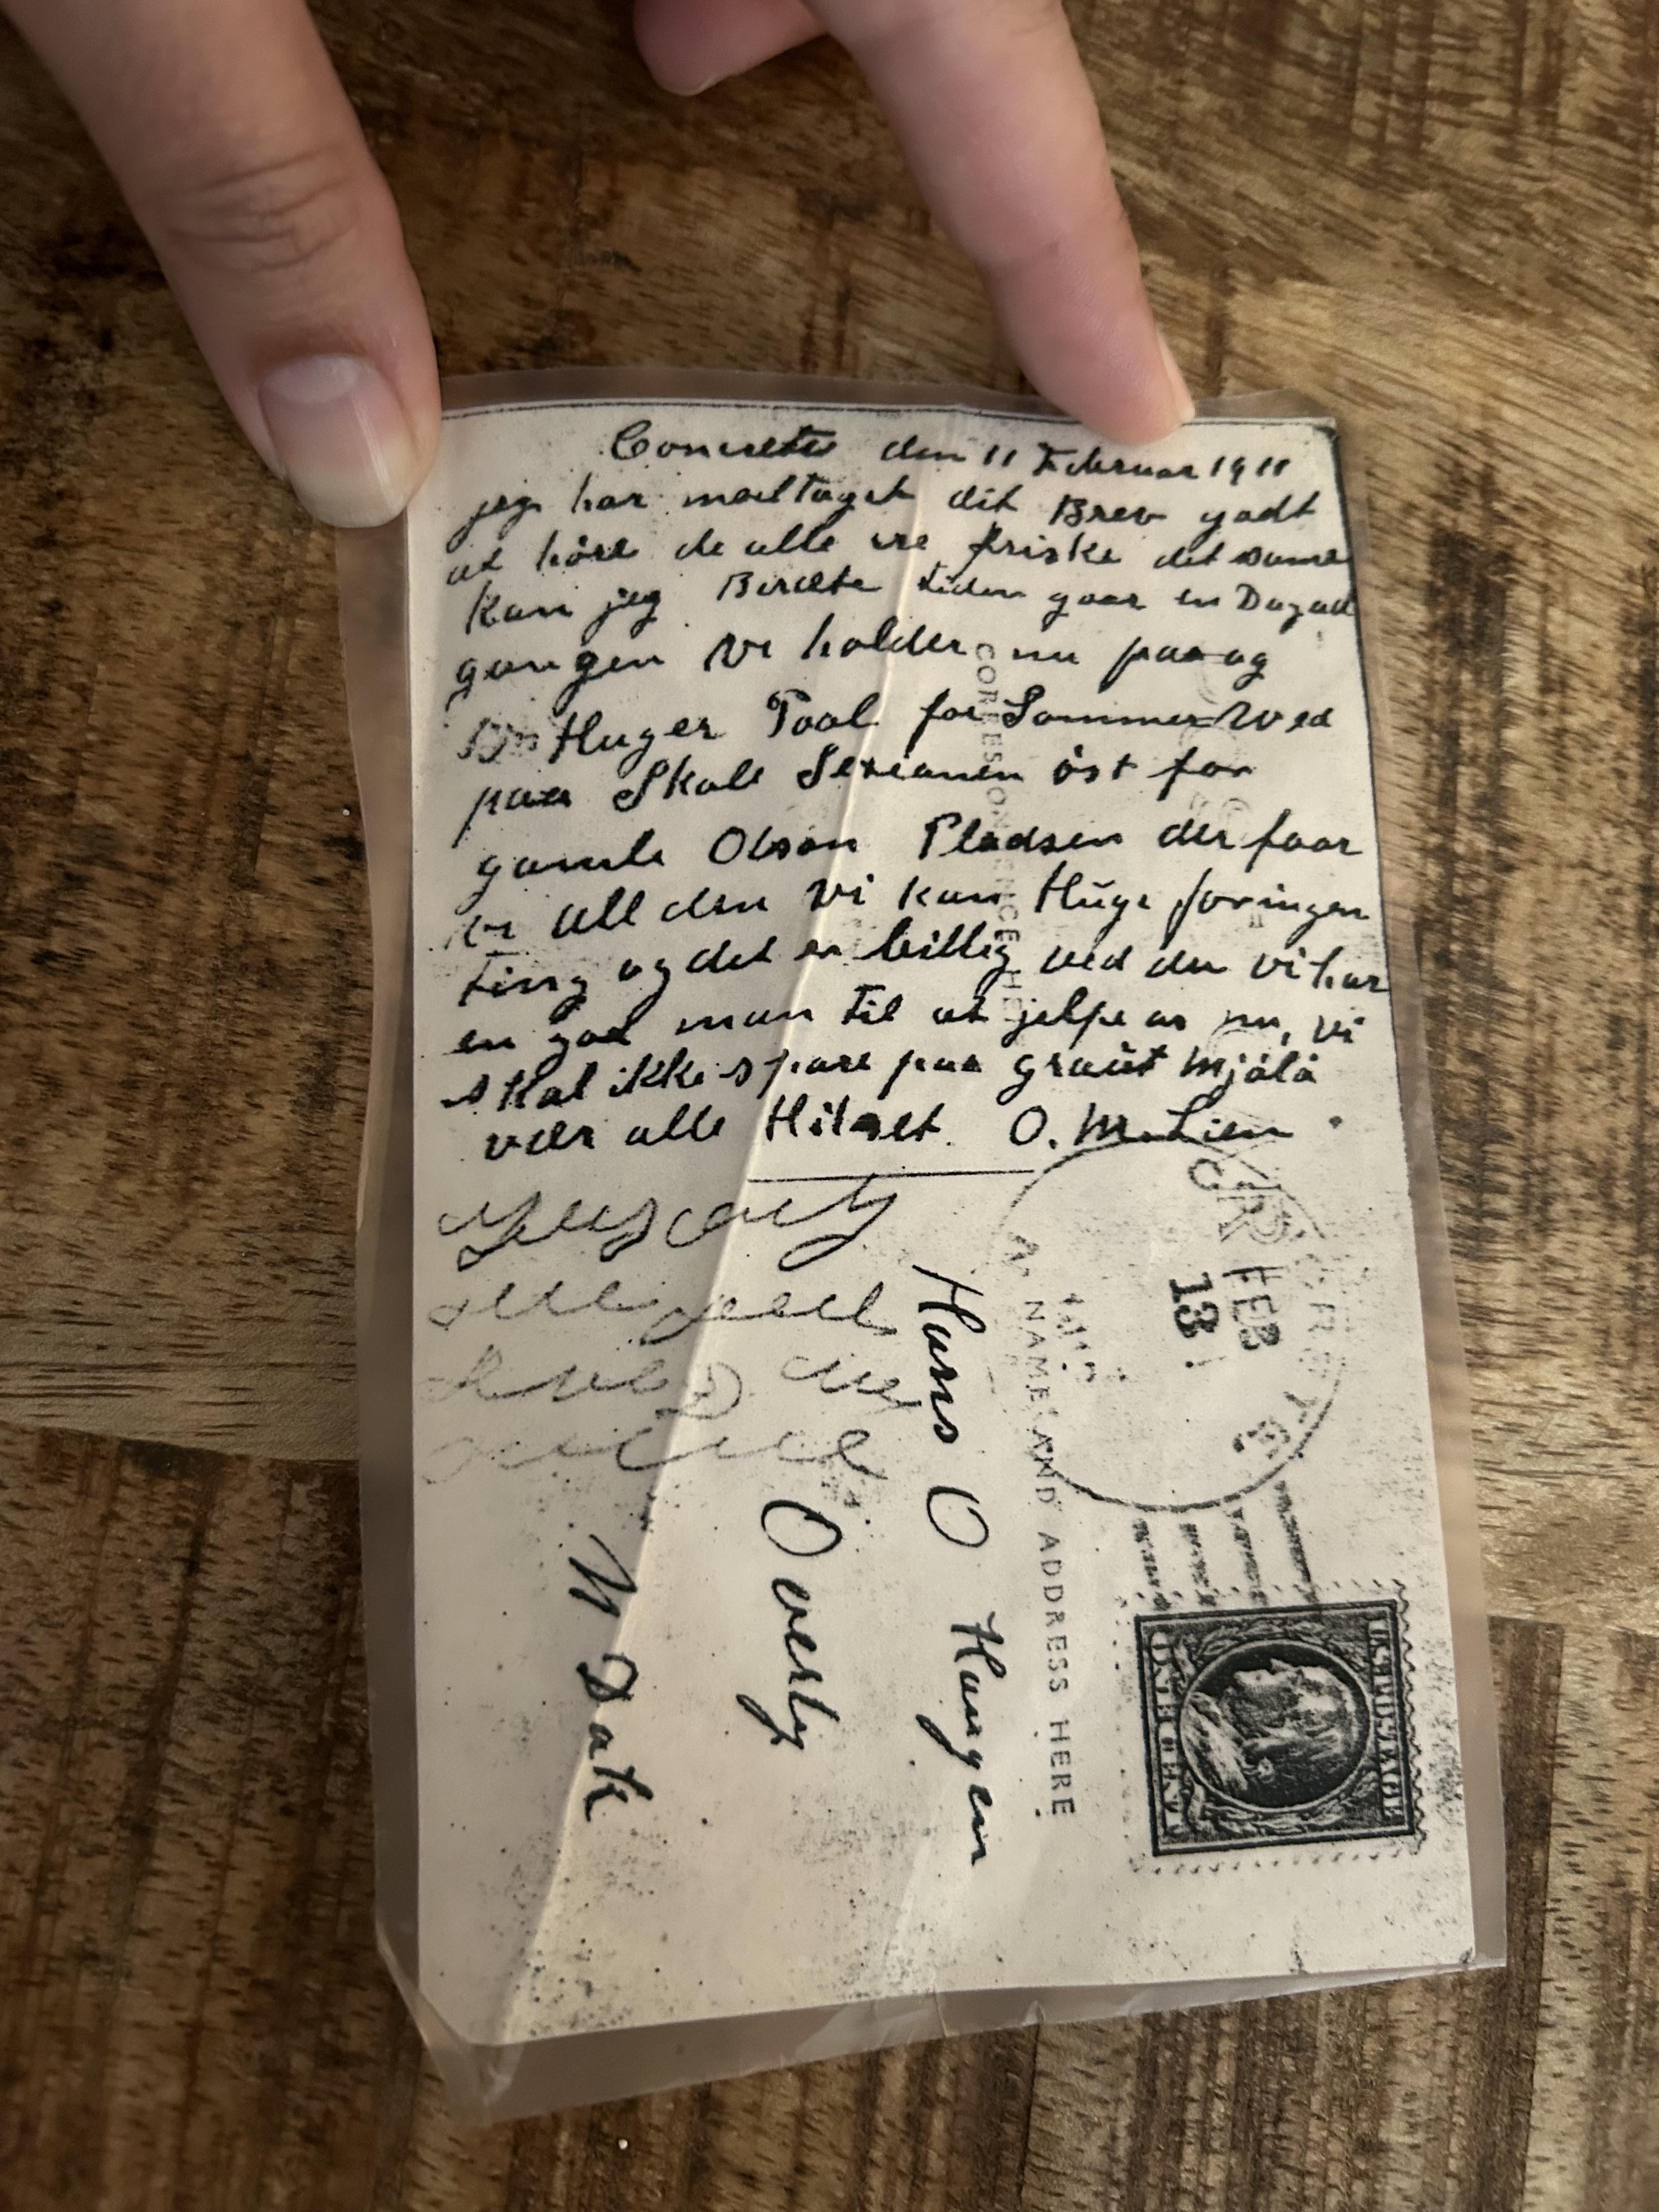 Concrete den 11 Februar 1911
jeg har modtaget dit Brev godt
at høre de alle ere friske det samme
Kan jeg Berætte tiden gaar en Dag ad
gangen Vi holder nu paa og
Huger Pool for Sommer Ved
paa Skole Sexionen öst for
gamle Olson Pladsen der faar
vi all den vi kan Hŭge for ingen
ting og det er billig ved du vi har
en god man til at jelpe os nu, vi
skal ikke spare paa graŭt mjölå
vær alle Hilset. O. M. Lien
CORRESPONDENCE HERE
Hans O Haugen
Overly
N Dak
NAME AND ADDRESS HERE
CONCRETE.
FEB
13
U.S. POSTAGE